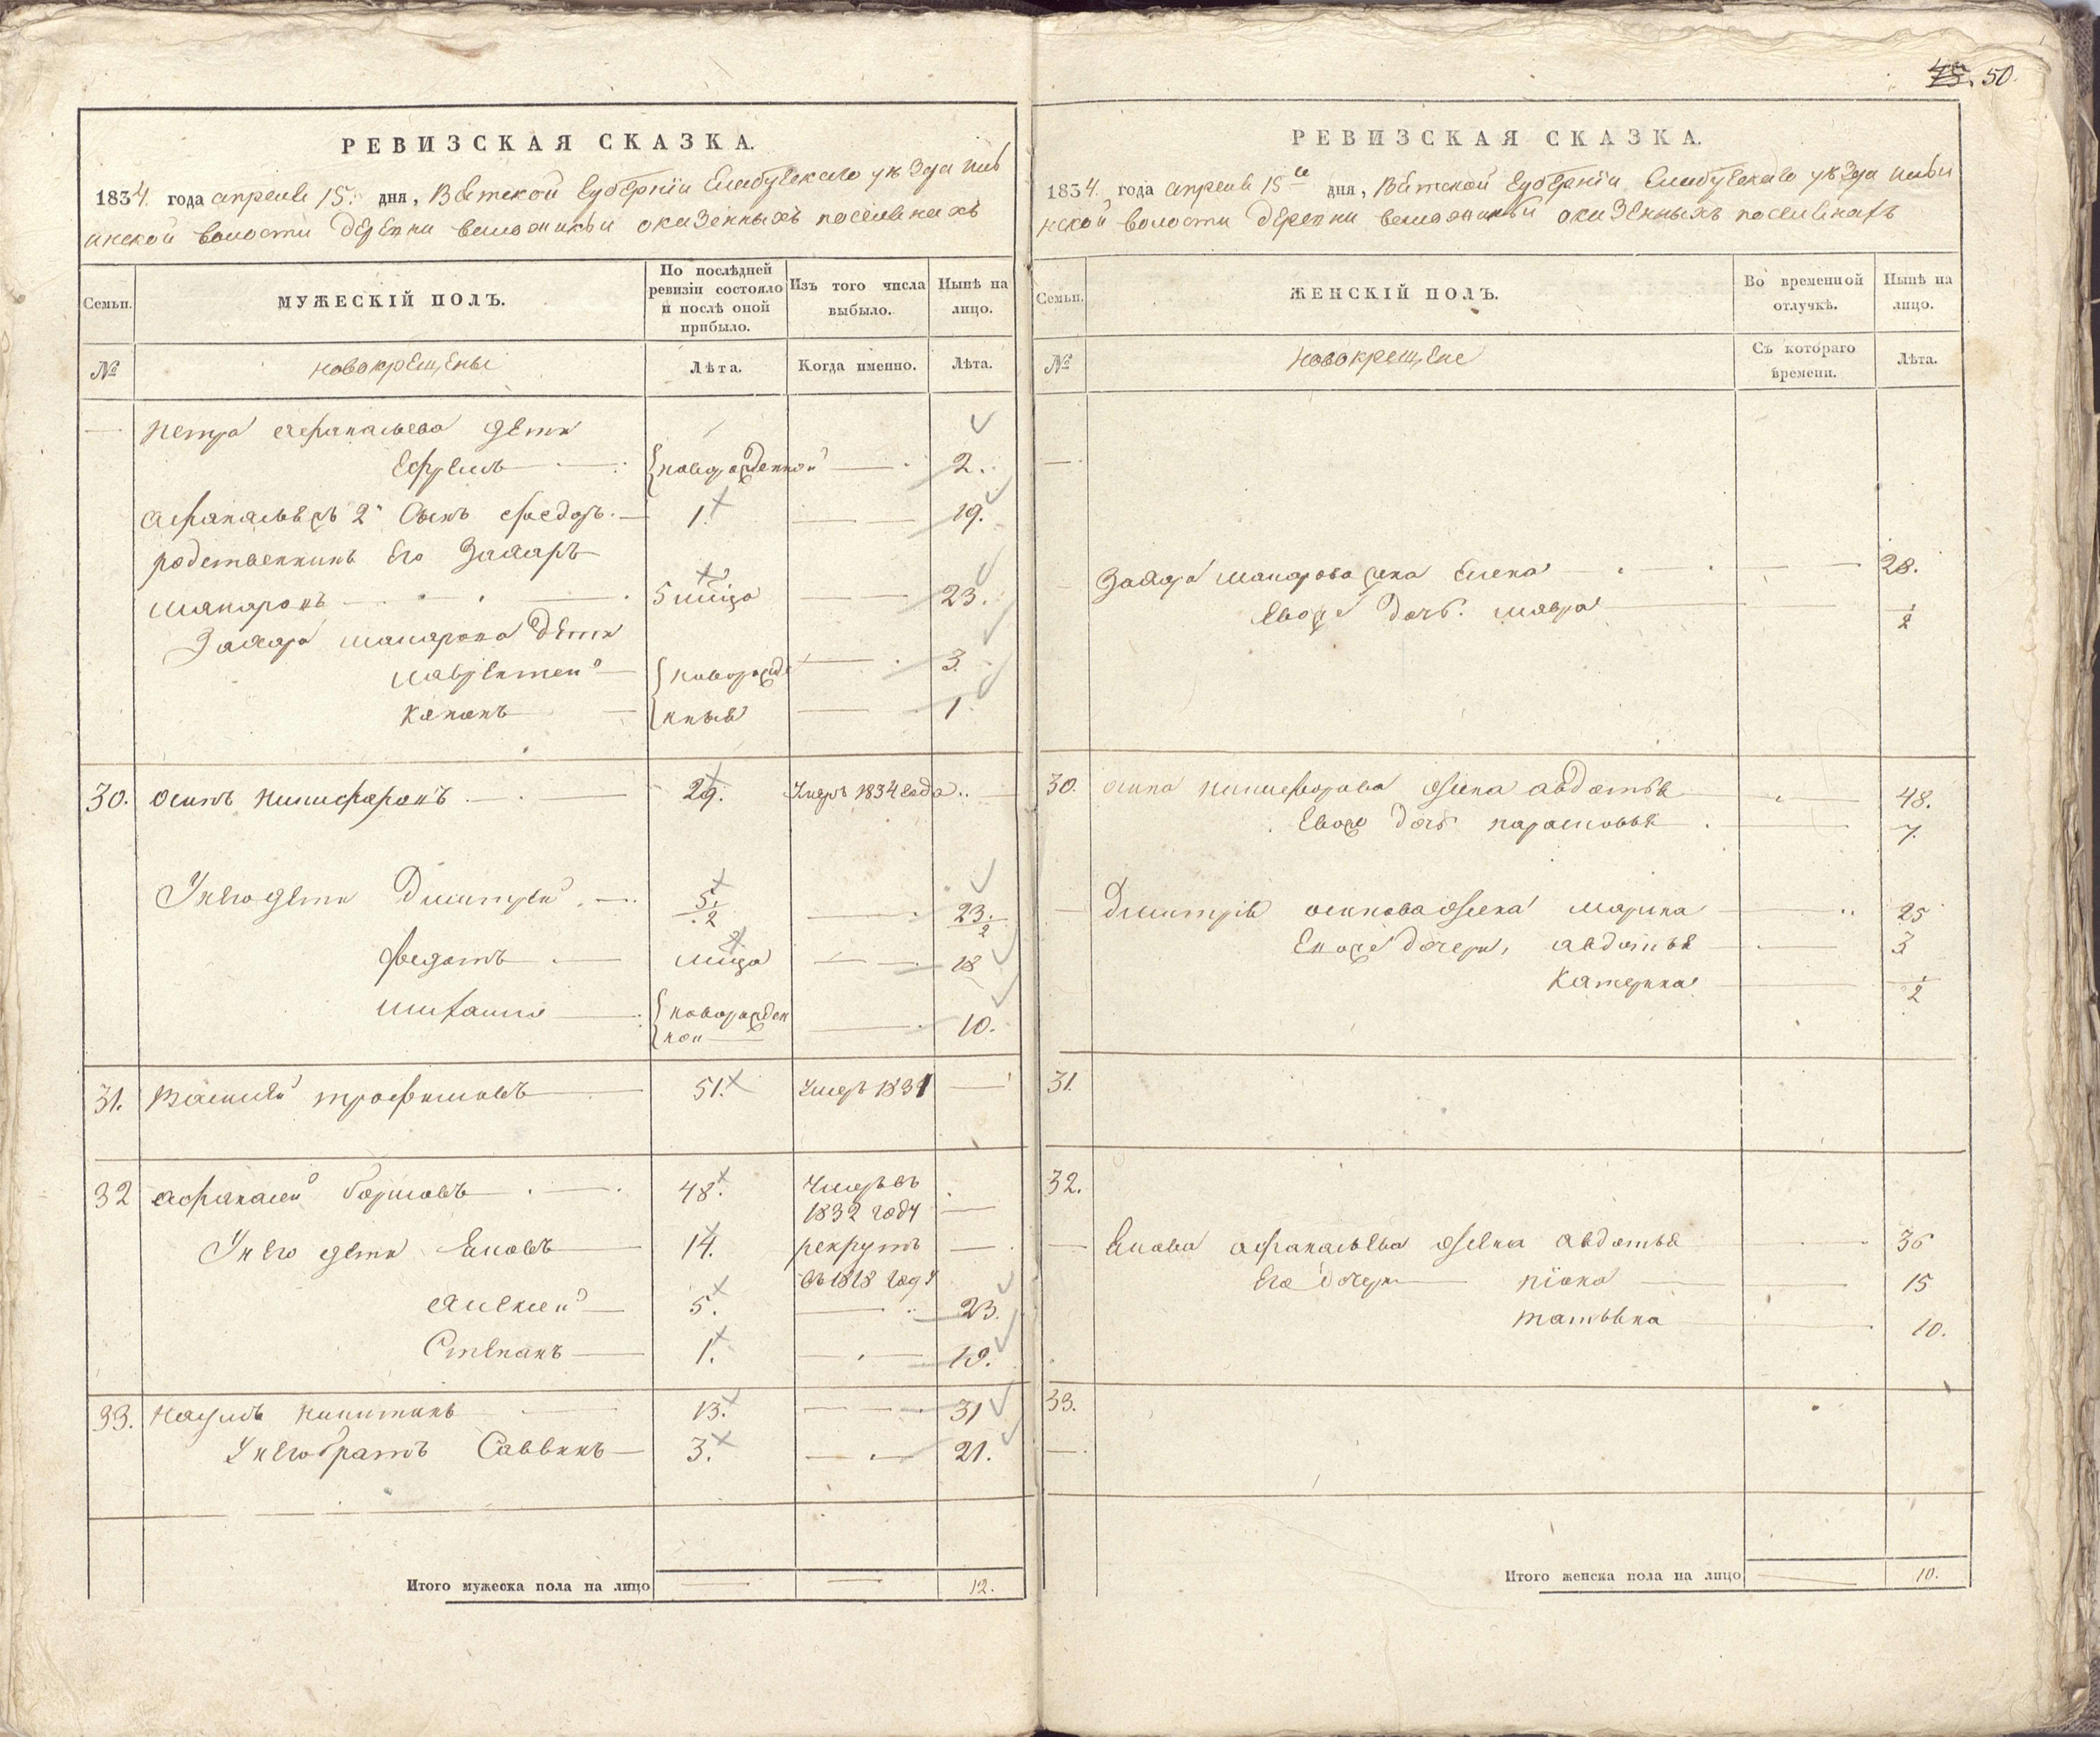 45. 50.
РЕВИЗСКАЯ СКАЗКА.
1834 года апреля 15 дня, Вятской губернiи Елабужскаго уѣзда
волости деревни о казенныхъ поселянахъ
Семьи. МУЖЕСКIЙ ПОЛЪ. По послѣдней ревизiи состояло и послѣ оной прибыло. Изъ того числа выбыло. Нынѣ на лицо.
№ новокрещены Лѣта. Когда именно. Лѣта.
Петра Афанасьева дети
Ефремъ новорожденной 2.
Афанасьевъ 2й Сынъ Федоръ 1. 19.
родственникъ Его Захаръ
Макаровъ 5 мцъ 23.
Захара Макарова дети
Лаврентей новорожде 3.
Канонъ нные 1.
30. Осипъ Никифоровъ 29. Умеръ 1834 года
У него дети Дмитрей 5 1/2 23 1/2
Федотъ мцъ 18
Михайла новорожден 10.
ной
31. Василей Трофимовъ 51. Умеръ 1831
32 Афанасей Борисовъ 48. Умеръ въ
1832 году
У него дети Яковъ 14. рекрутъ
въ 1818 году
Алексей 5. 23.
Степанъ 1. 19.
33. Наумъ Никитинъ 13. 31
У него братъ Саввинъ 3. 21.
Итого мужеска пола на лицо 12.
РЕВИЗСКАЯ СКАЗКА.
1834. года апреля 15 дня, Вятской губернiи Елабужскаго уѣзда
нской волости деревни о казенныхъ поселянахъ
Семьи. ЖЕНСКIЙ ПОЛЪ. Во временной отлучкѣ. Нынѣ на лицо.
№ новокрещене Съ котораго времени. Лѣта.
Захара Макарова жена Елена 28.
Евоже дочь Мавра 1/2
30. Осипа Никифорова жена Авдотья 48.
Евоже дочь Парасковья 7.
Дмитрiя Осипова жена Марина 25
Евоже дочери, Авдотья 3
Катерина 1/2
31.
32.
Якова Афанасьева жена Авдотья 36
Его дочери 15
Татьяна 10.
33.
Итого женска пола на лицо 10.